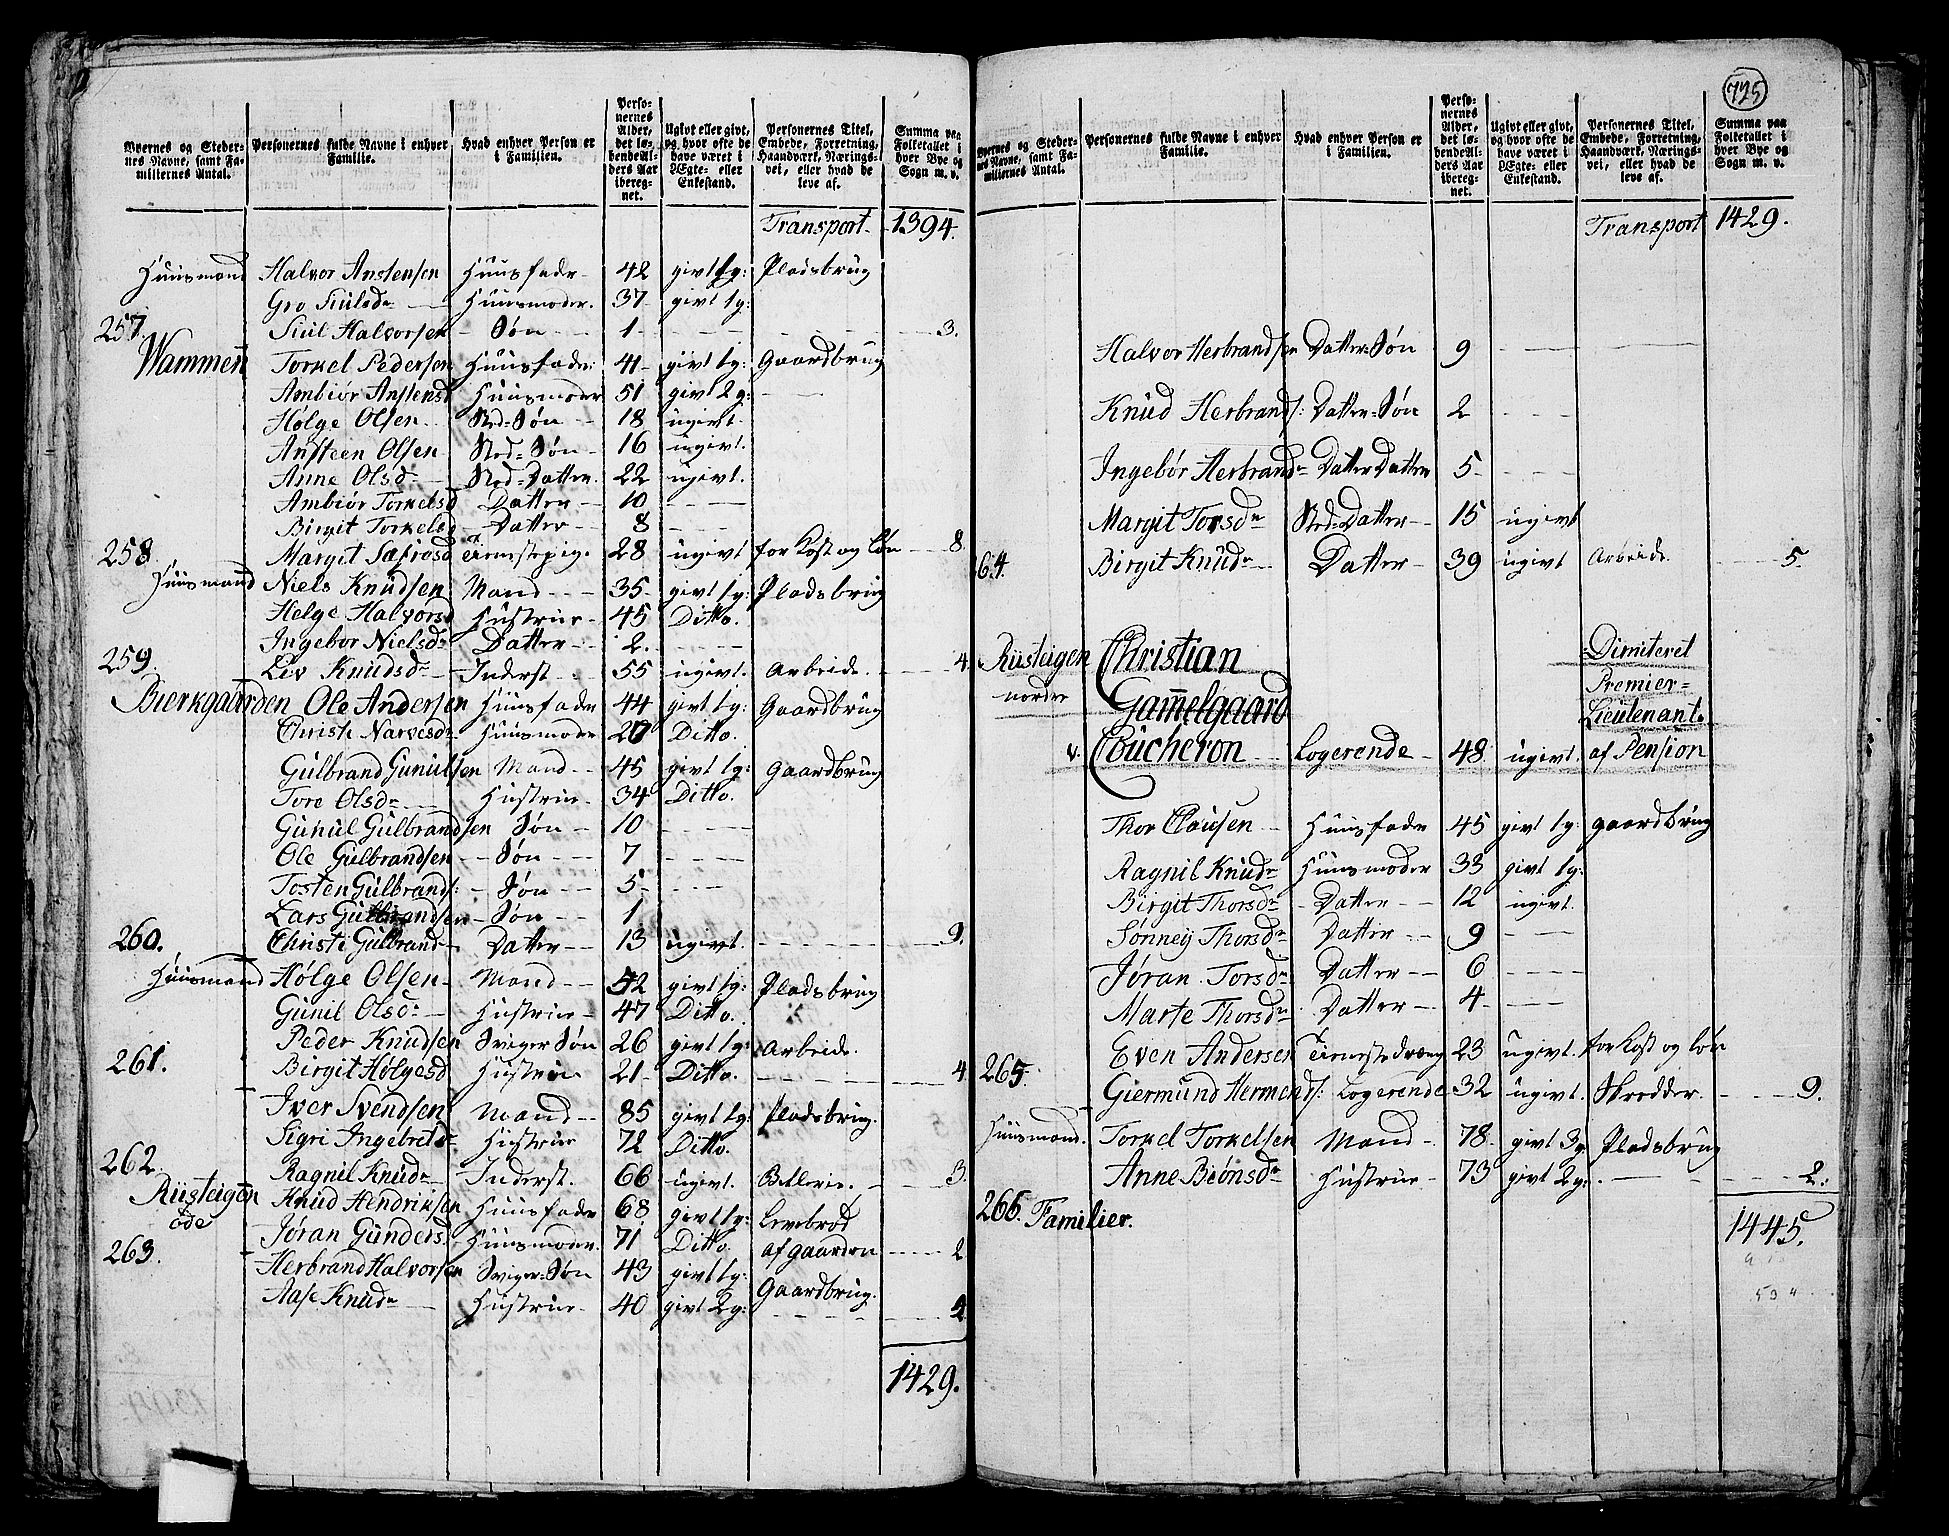 Byernes og Stedernes Navne, samt Familiernes Antal. | Personernes fulde Navne i enhver Familie. | Hvad enhver Person er i Familien. | Personernes Alder, det løbende Alders Aar iberegnet. | Ugivt eller givt, og hvor ofte de have været i Ægte- eller Enkestand. | Personernes Titel, Embede, Forretning, Haandværk, Næringsvei, eller hvad de leve af. | Summa paa Folketallet i hver Bye og Sogn m. v.
Transport 1394.
Huusmand Halvor Anstensen Huusfader 42 givt 1g: Pladsbrug
Gro Siulsdr Huusmoder. 37 givt 1g:
257. Siul Halvorsen Søn 1 3.
Wammen Torkel Pedersen Huusfader 41 givt 1g: Gaardbrug
Ambiør Anstensd Huusmoder 51 givt 2g:
Hølge Olsen Sted-Søn 18 ugivt.
Ansteen Olsen Sted-Søn 16 ugivt.
Anne Olsd Sted-Datter. 22 ugivt.
Ambiør Torkelsd Datter 10
Birgit Torkelsd Datter 8
258. Margit Sæfrosd Tienestepig. 28 ugivt for Kost og Løn 8.
Huusmand Niels Knudsen Mand 35 givt 1g: Pladsbrug
Helge Halvorsd Hustrue 45 Ditto.
Ingebor Nielsdr Datter 2.
259. Liv Knudsdr Inderst 55 ugivt. Arbeide. 4.
Bierkgaarden Ole Andersen Huusfader 44 givt 1g: Gaardbrug
Christi Narvesdr Huusmoder 20 Ditto.
Gulbrand Gunulsen Mand 45 givt 1g: Gaardbrug
Tore Olsdr Hustrue 34 Ditto.
Gunul Gulbrandsen Søn 10
Ole Gulbrandsen Søn 7
Tosten Gulbrands: Søn 5
Lars Gulbrandsen Søn 1
260. Christi Gulbrand Datter 13 ugivt. 9.
Huusmand Hølge Olsen Mand 52 givt 1g: Pladsbrug
Gunil Olsdr Hustrue 47 Ditto.
Peder Knudsen Sviger Søn 26 givt 1g: Arbeide.
261. Birgit Hølgesd Hustrue 21 Ditto. 4
Iver Svendsen Mand 85 givt 1g: Pladsbrug.
Sigri Ingebretsdr Hustrue 72 Ditto.
262. Ragnil Knudr Inderst. 66 ugivt. Betlerie. 3.
Rusteigen øde Knud Hendriksen Huusfader 68 givt 1g: Levebrød
263. Jøran Gunders. Huusmoder. 71 Ditto. af gaarden 2
Herbrand Halvorsen Sviger-Søn 43 givt 1g: Gaardbrug.
Aase Knudr Hustrue 40 givt 2g: 2
1429.
725
Byernes og Stedernes Navne, samt Familiernes Antal. | Personernes fulde Navne i enhver Familie. | Hvad enhver Person er i Familien. | Personernes Alder, det løbende Alders Aar iberegnet. | Ugivt eller givt, og hvor ofte de have været i Ægte- eller Enkestand. | Personernes Titel, Embede, Forretning, Haandværk, Næringsvei, eller hvad de leve af. | Summa paa Folketallet i hver Bye og Sogn m. v.
Transport 1429.
Halvor Herbrandsen Datter-Søn 9
Knud Herbrands: Datter-Søn 2
Ingebør Herbrandr Datter Datter 5
Margit Torsdr Sted-Datter 15 ugivt
64. Birgit Knudr Datter 39 ugivt Arbeide. 5.
Rusteigen Christian Dimiteret
nordre Gam̅elgaard Premier-
Lieutenant.
v. Coucheron Logerende 48. ugivt. af Pension
Thor Clausen Huusfader 45 givt 1g: gaardbrug
Ragnil Knudr Huusmoder 33 givt 1g:
Birgit Thorsdr Datter 12 ugivt.
Sønnev Thorsdr Datter 9
Jøran Torsdr Datter 6
Marte Thorsdr Datter 4
Even Andersen Tienestedreng 23 ugivt. for Kost og Løn
265. Giermund Hermends: Logerende 32 ugivt. Skredder. 9.
Huusmand. Torkel Torkelsen Mand 78. givt 3g Pladsbrug
Anne Biønsdr Hustrue 73 givt 2g: 2.
266. Familier. 1445.
534